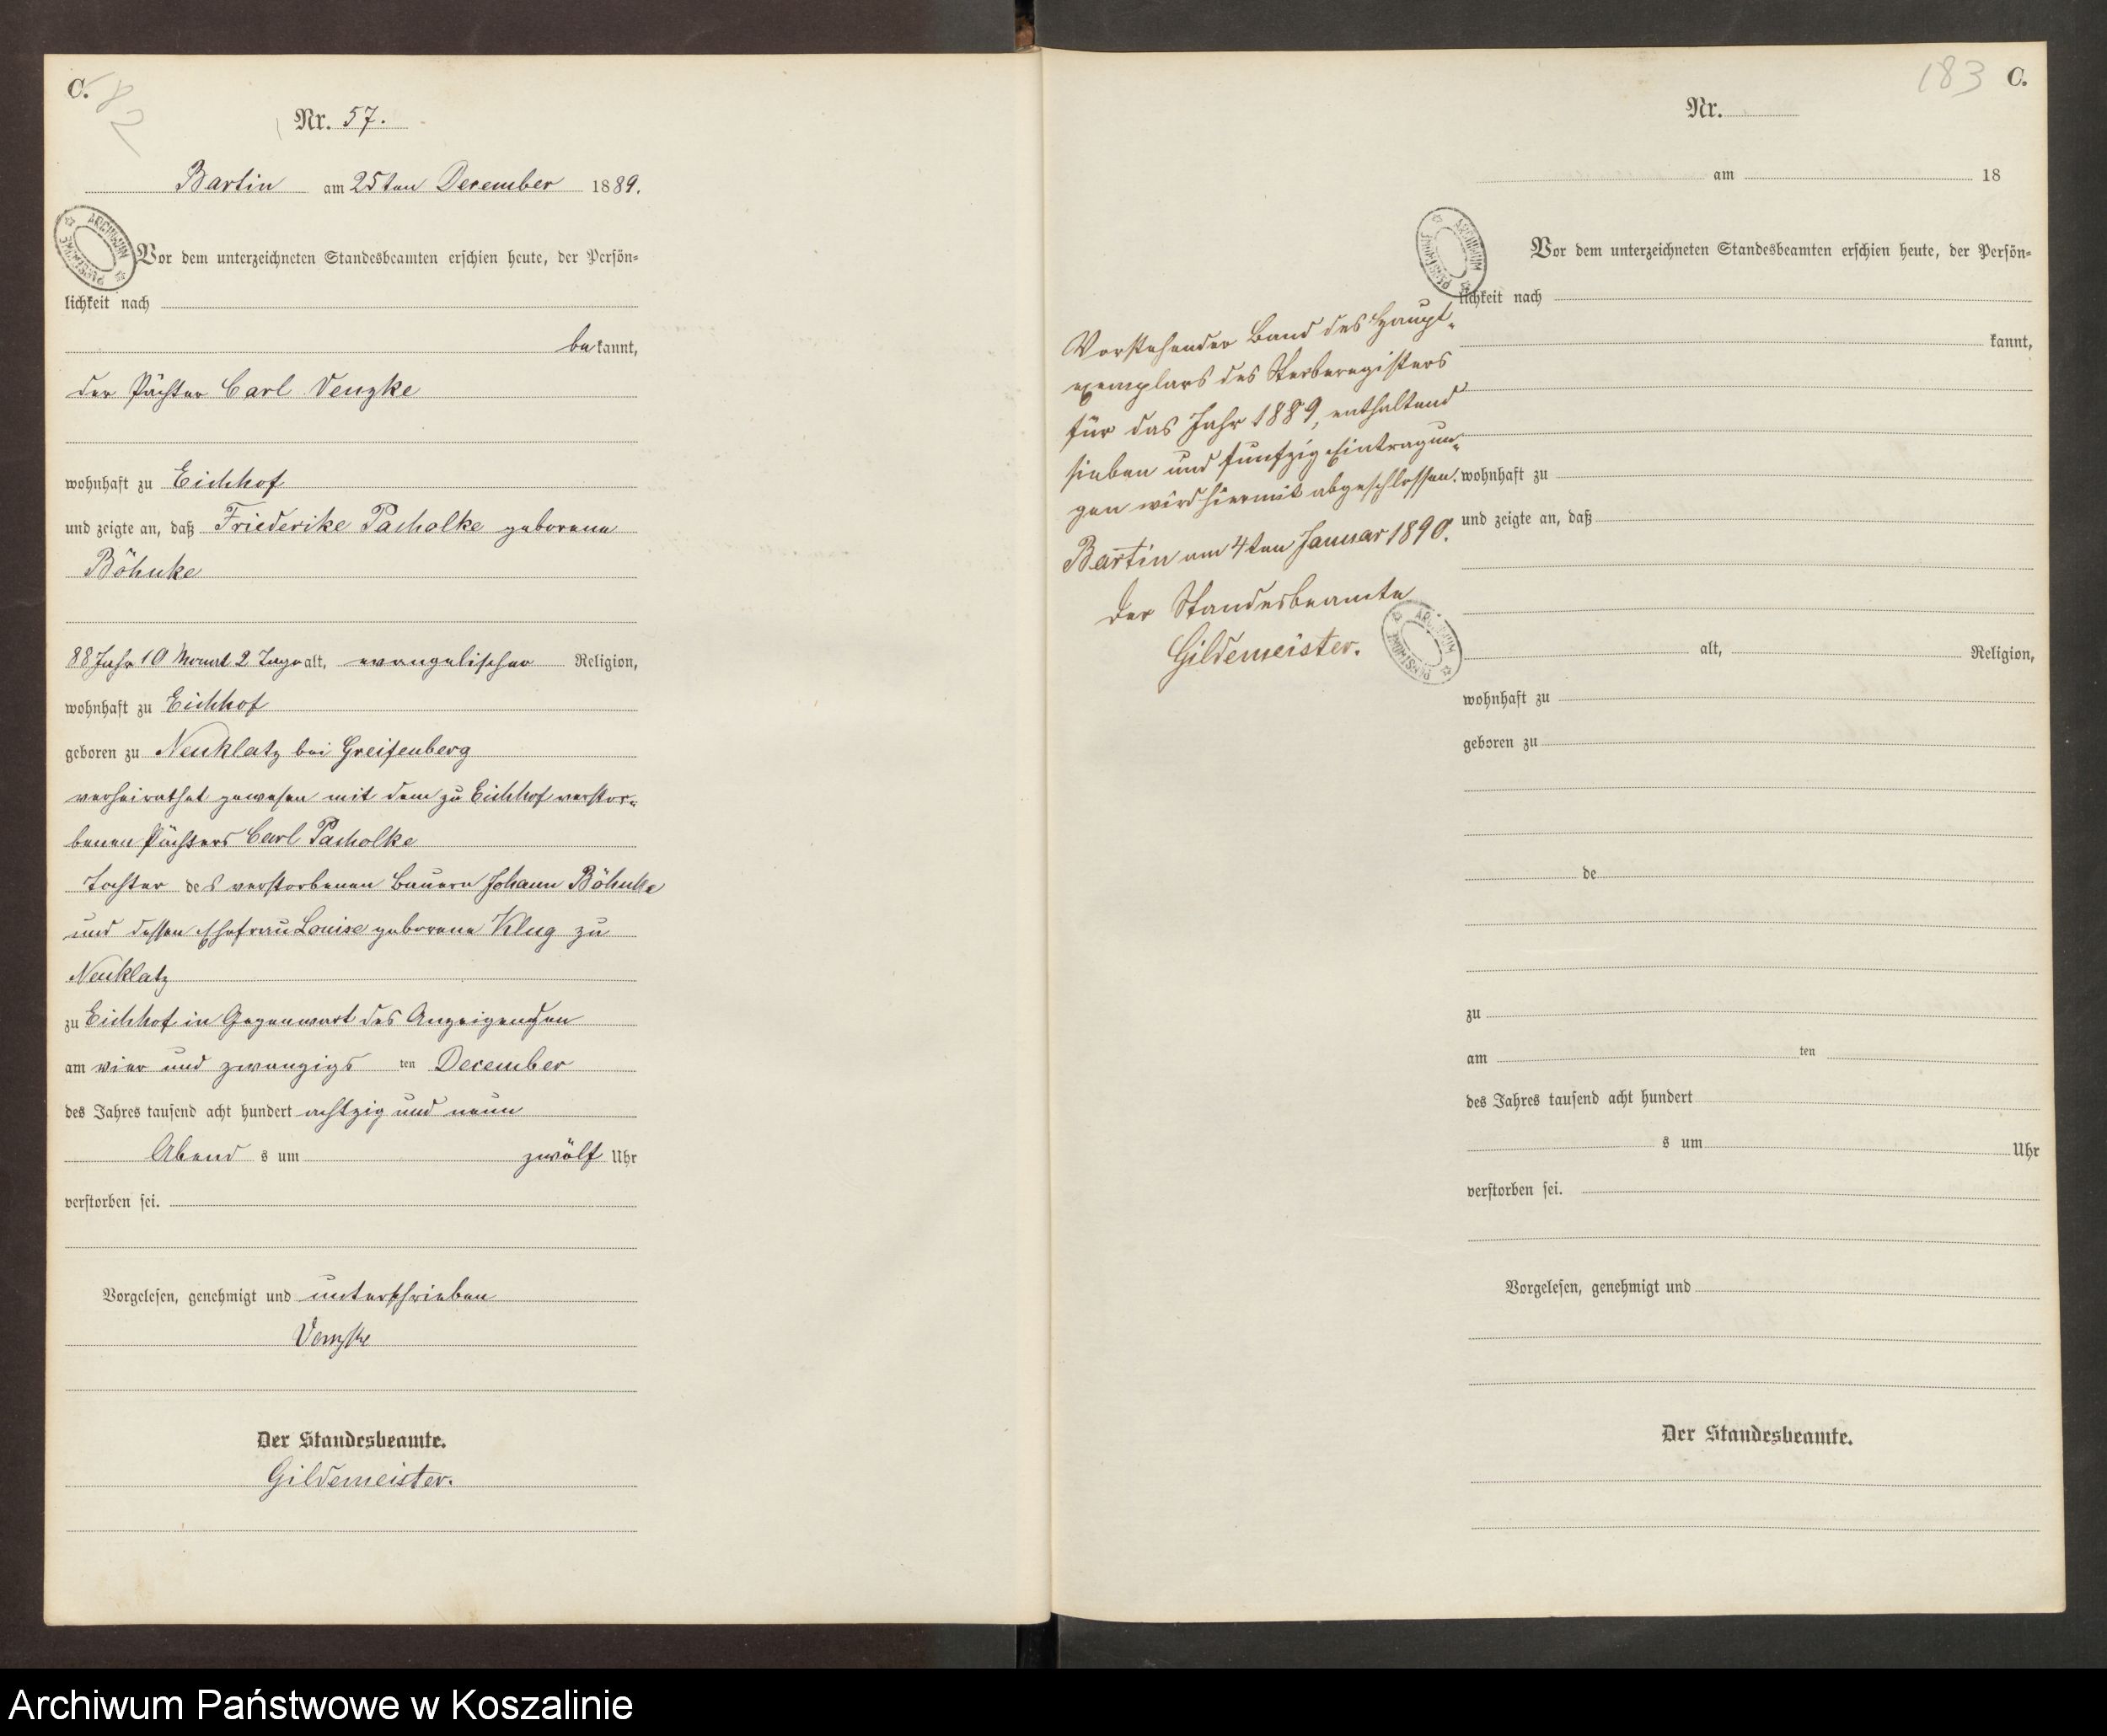 C.
82
Nr. 57.
Bartin am 25ten December 1889.
ARCHIWUM PAŃSTWOWE
Vor dem unterzeichneten Standesbeamten erschien heute, der Persön-
lichkeit nach
be kannt,
der Pächter Carl Venzke
wohnhaft zu Eichhof
und zeigte an, daß Friederike Pacholke geborene
Böhnke
88 Jahr 10 Monat 2 Tage alt, evangelischer Religion,
wohnhaft zu Eichhof
geboren zu Neuklatz bei Greifenberg
verheirathet gewesen mit dem zu Eichhof verstor-
benen Pächters Carl Pacholke
Tochter des verstorbenen Bauern Johann Böhnke
und dessen Ehefrau Louise geborene Klug zu
Neuklatz
zu Eichhof in Gegenwart des Anzeigenden
am vier und zwanzigs ten December
des Jahres tausend acht hundert achtzig und neun
Abend s um zwölf Uhr
verstorben sei.
Vorgelesen, genehmigt und unterschrieben
Venzke
Der Standesbeamte.
Gildemeister.
183 C.
Nr.
am 18
ARCHIWUM PAŃSTWOWE
Vor dem unterzeichneten Standesbeamten erschien heute, der Persön-
lichkeit nach
kannt,
wohnhaft zu
und zeigte an, daß
alt, Religion,
wohnhaft zu
geboren zu
de
zu
am ten
des Jahres tausend acht hundert
s um Uhr
verstorben sei.
Vorgelesen, genehmigt und
Der Standesbeamte.
Vorstehender Band des Haupt-
exemplars des Sterberegisters
für das Jahr 1889, enthaltend
sieben und funfzig Eintragun-
gen wird hiermit abgeschlossen.
Bartin am 4ten Januar 1890.
Der Standesbeamte
Gildemeister.
ARCHIWUM PAŃSTWOWE
Archiwum Państwowe w Koszalinie